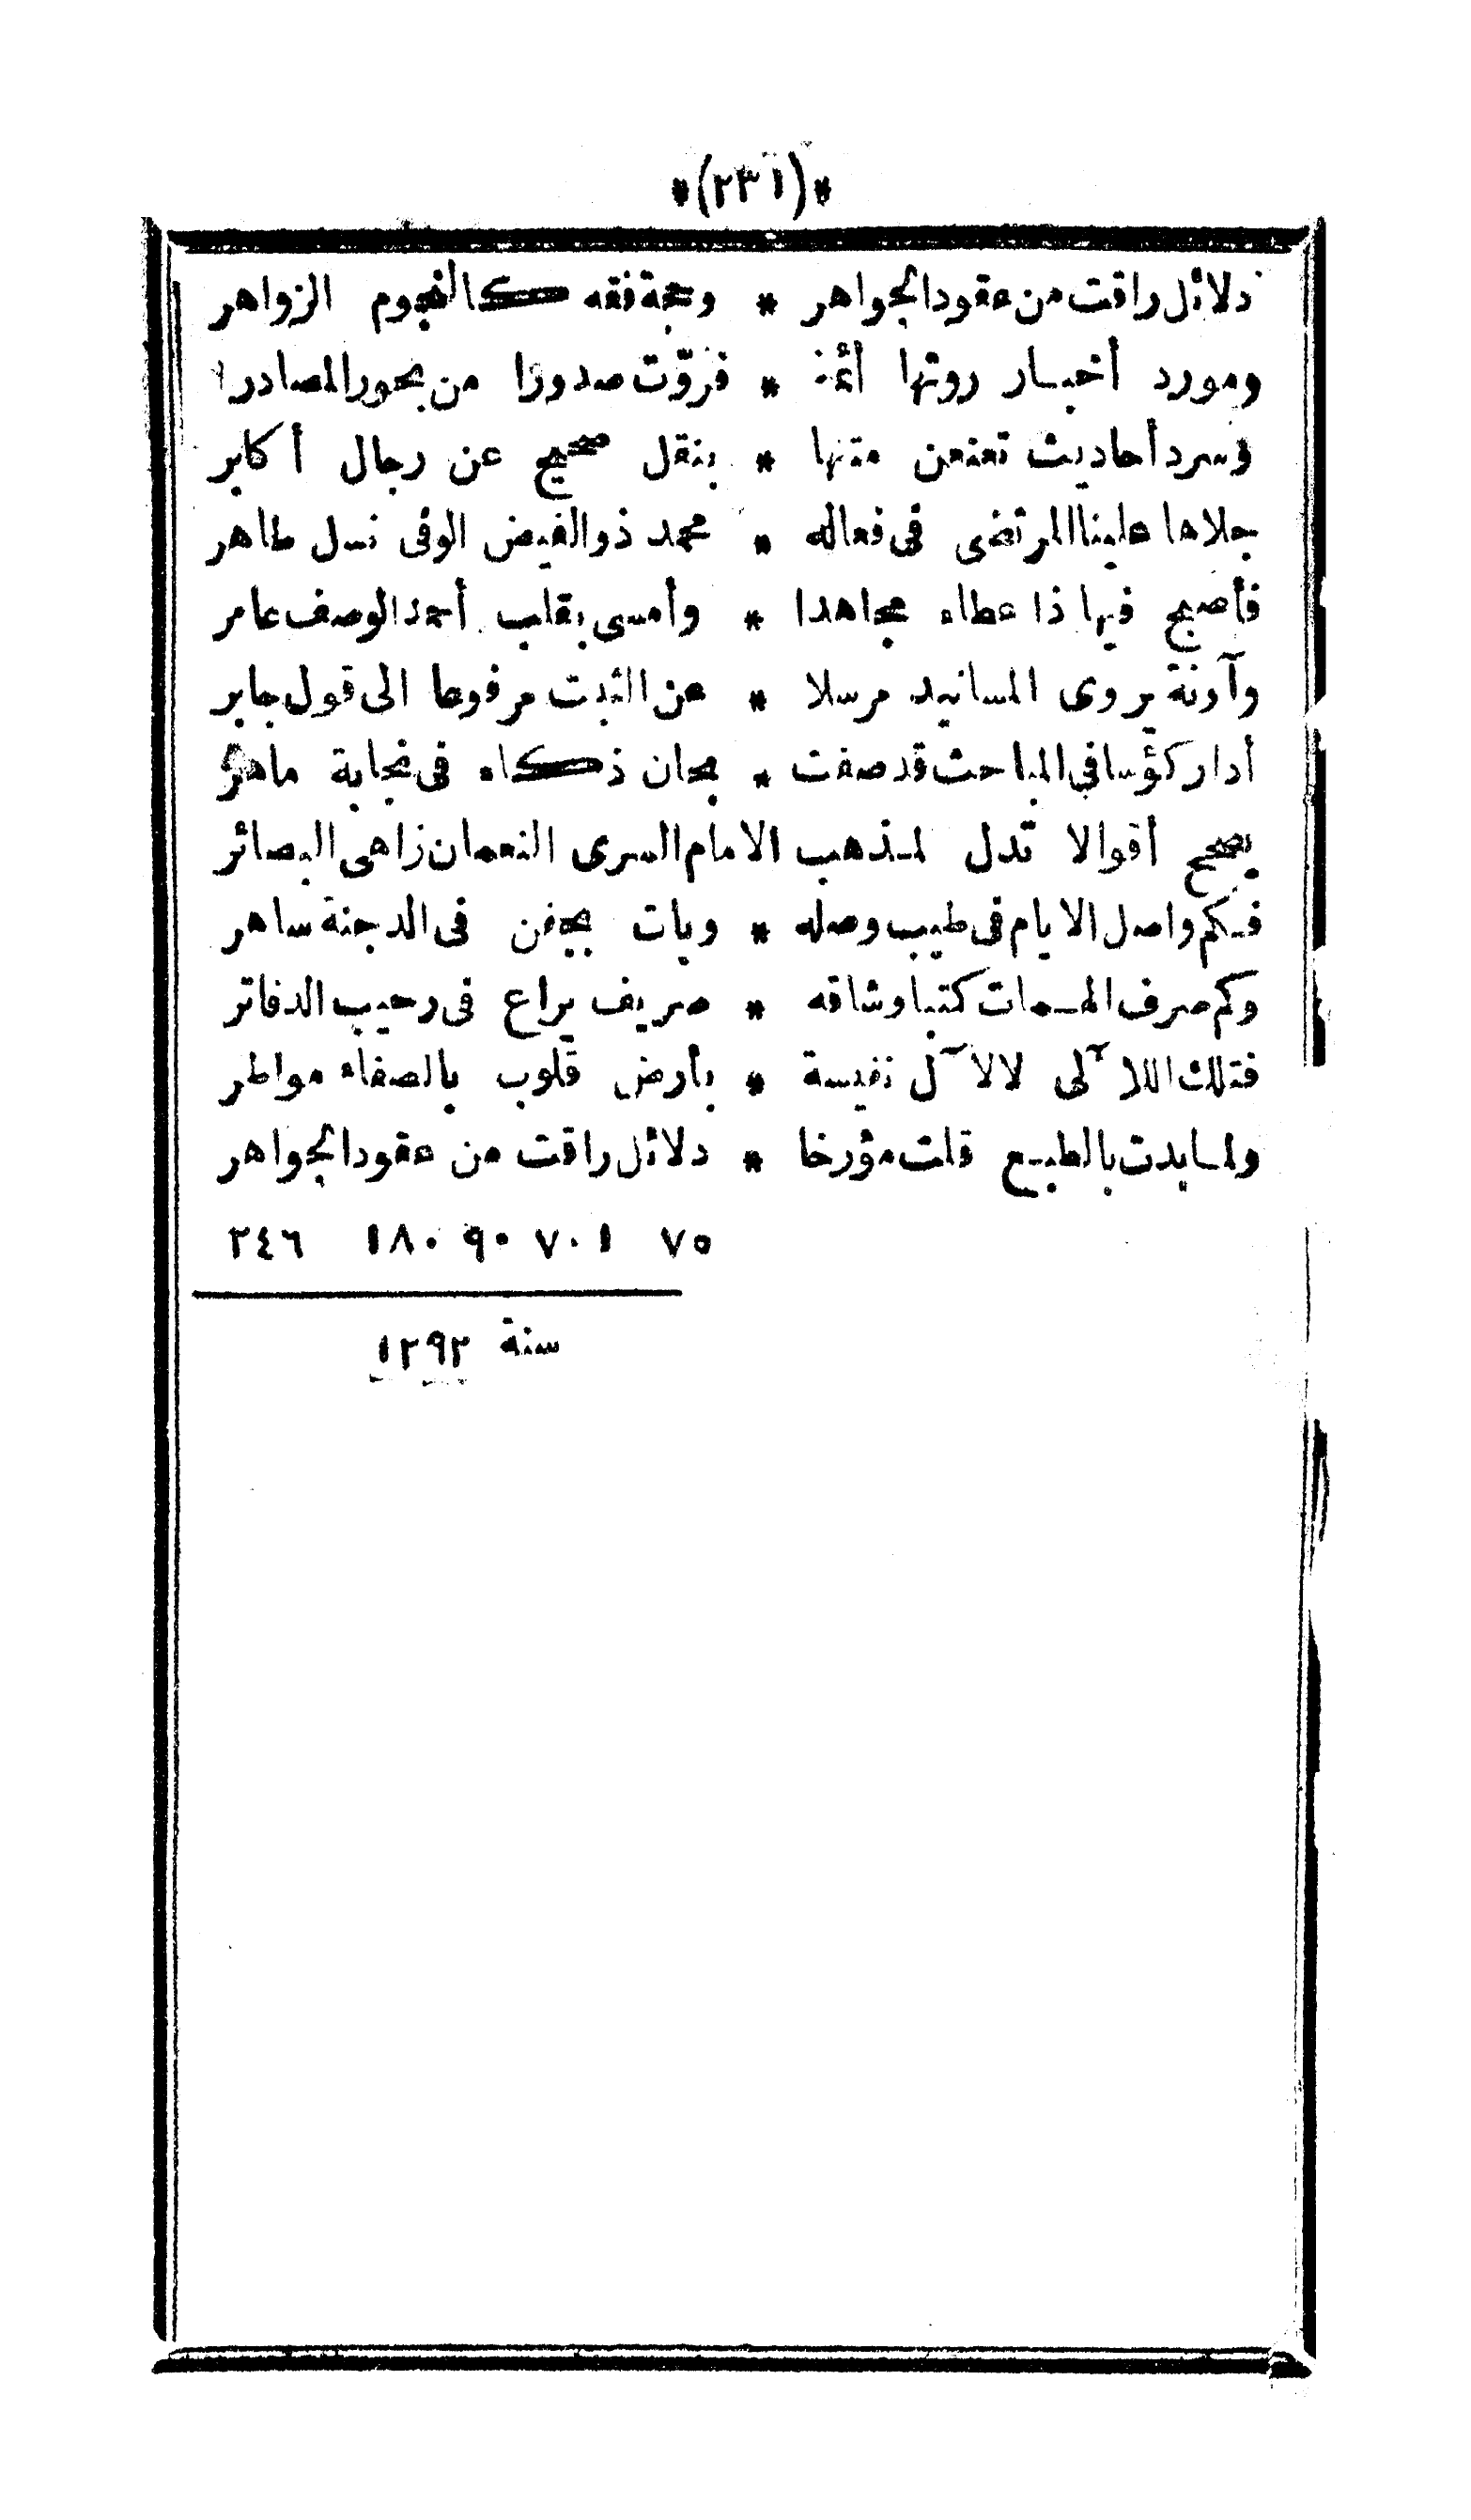 *(٢٣١)*
دلائل راقت من عقود الجواهر * وحجة فقه كالنجوم الزواهر
ومورد أخبار روتها أئمة * فروّت صدورا من بحور المصادر
وسرد أحاديث تعنعن متنها * بنقل صحيح عن رجال أكابر
جلاها علينا المرتضى فى فعاله * محمد ذو الفيض الوفى نسل طاهر
فأصبح فيها ذا عطاء مجاهدا * وأمسى بقلب أحمد الوصف عامر
وآونة يروى المسانيد مرسلا * عن الثبت مرفوعا الى قول جابر
أدار كؤسا فى المباحث قد صفت * بحان ذكاء فى نجابة ماهر
يصحح أقوالا تدل لمذهب الامام السرى النعمان زاهى البصائر
فكم واصل الايام فى طيب وصله * وبات بجفن فى الدجنة ساهر
وكم صرف المهمات كتبا وشاقه * صريف يراع فى رحيب الدفاتر
فتلك اللآلى لالآل نفيسة * بأرض قلوب بالصفاء مواطر
ولما بدت بالطبع قلت مؤرخا * دلائل راقت من عقود الجواهر
٧٥ ٧٠١ ٩٠ ١٨٠ ٢٤٦
سنة ١٢٩٢